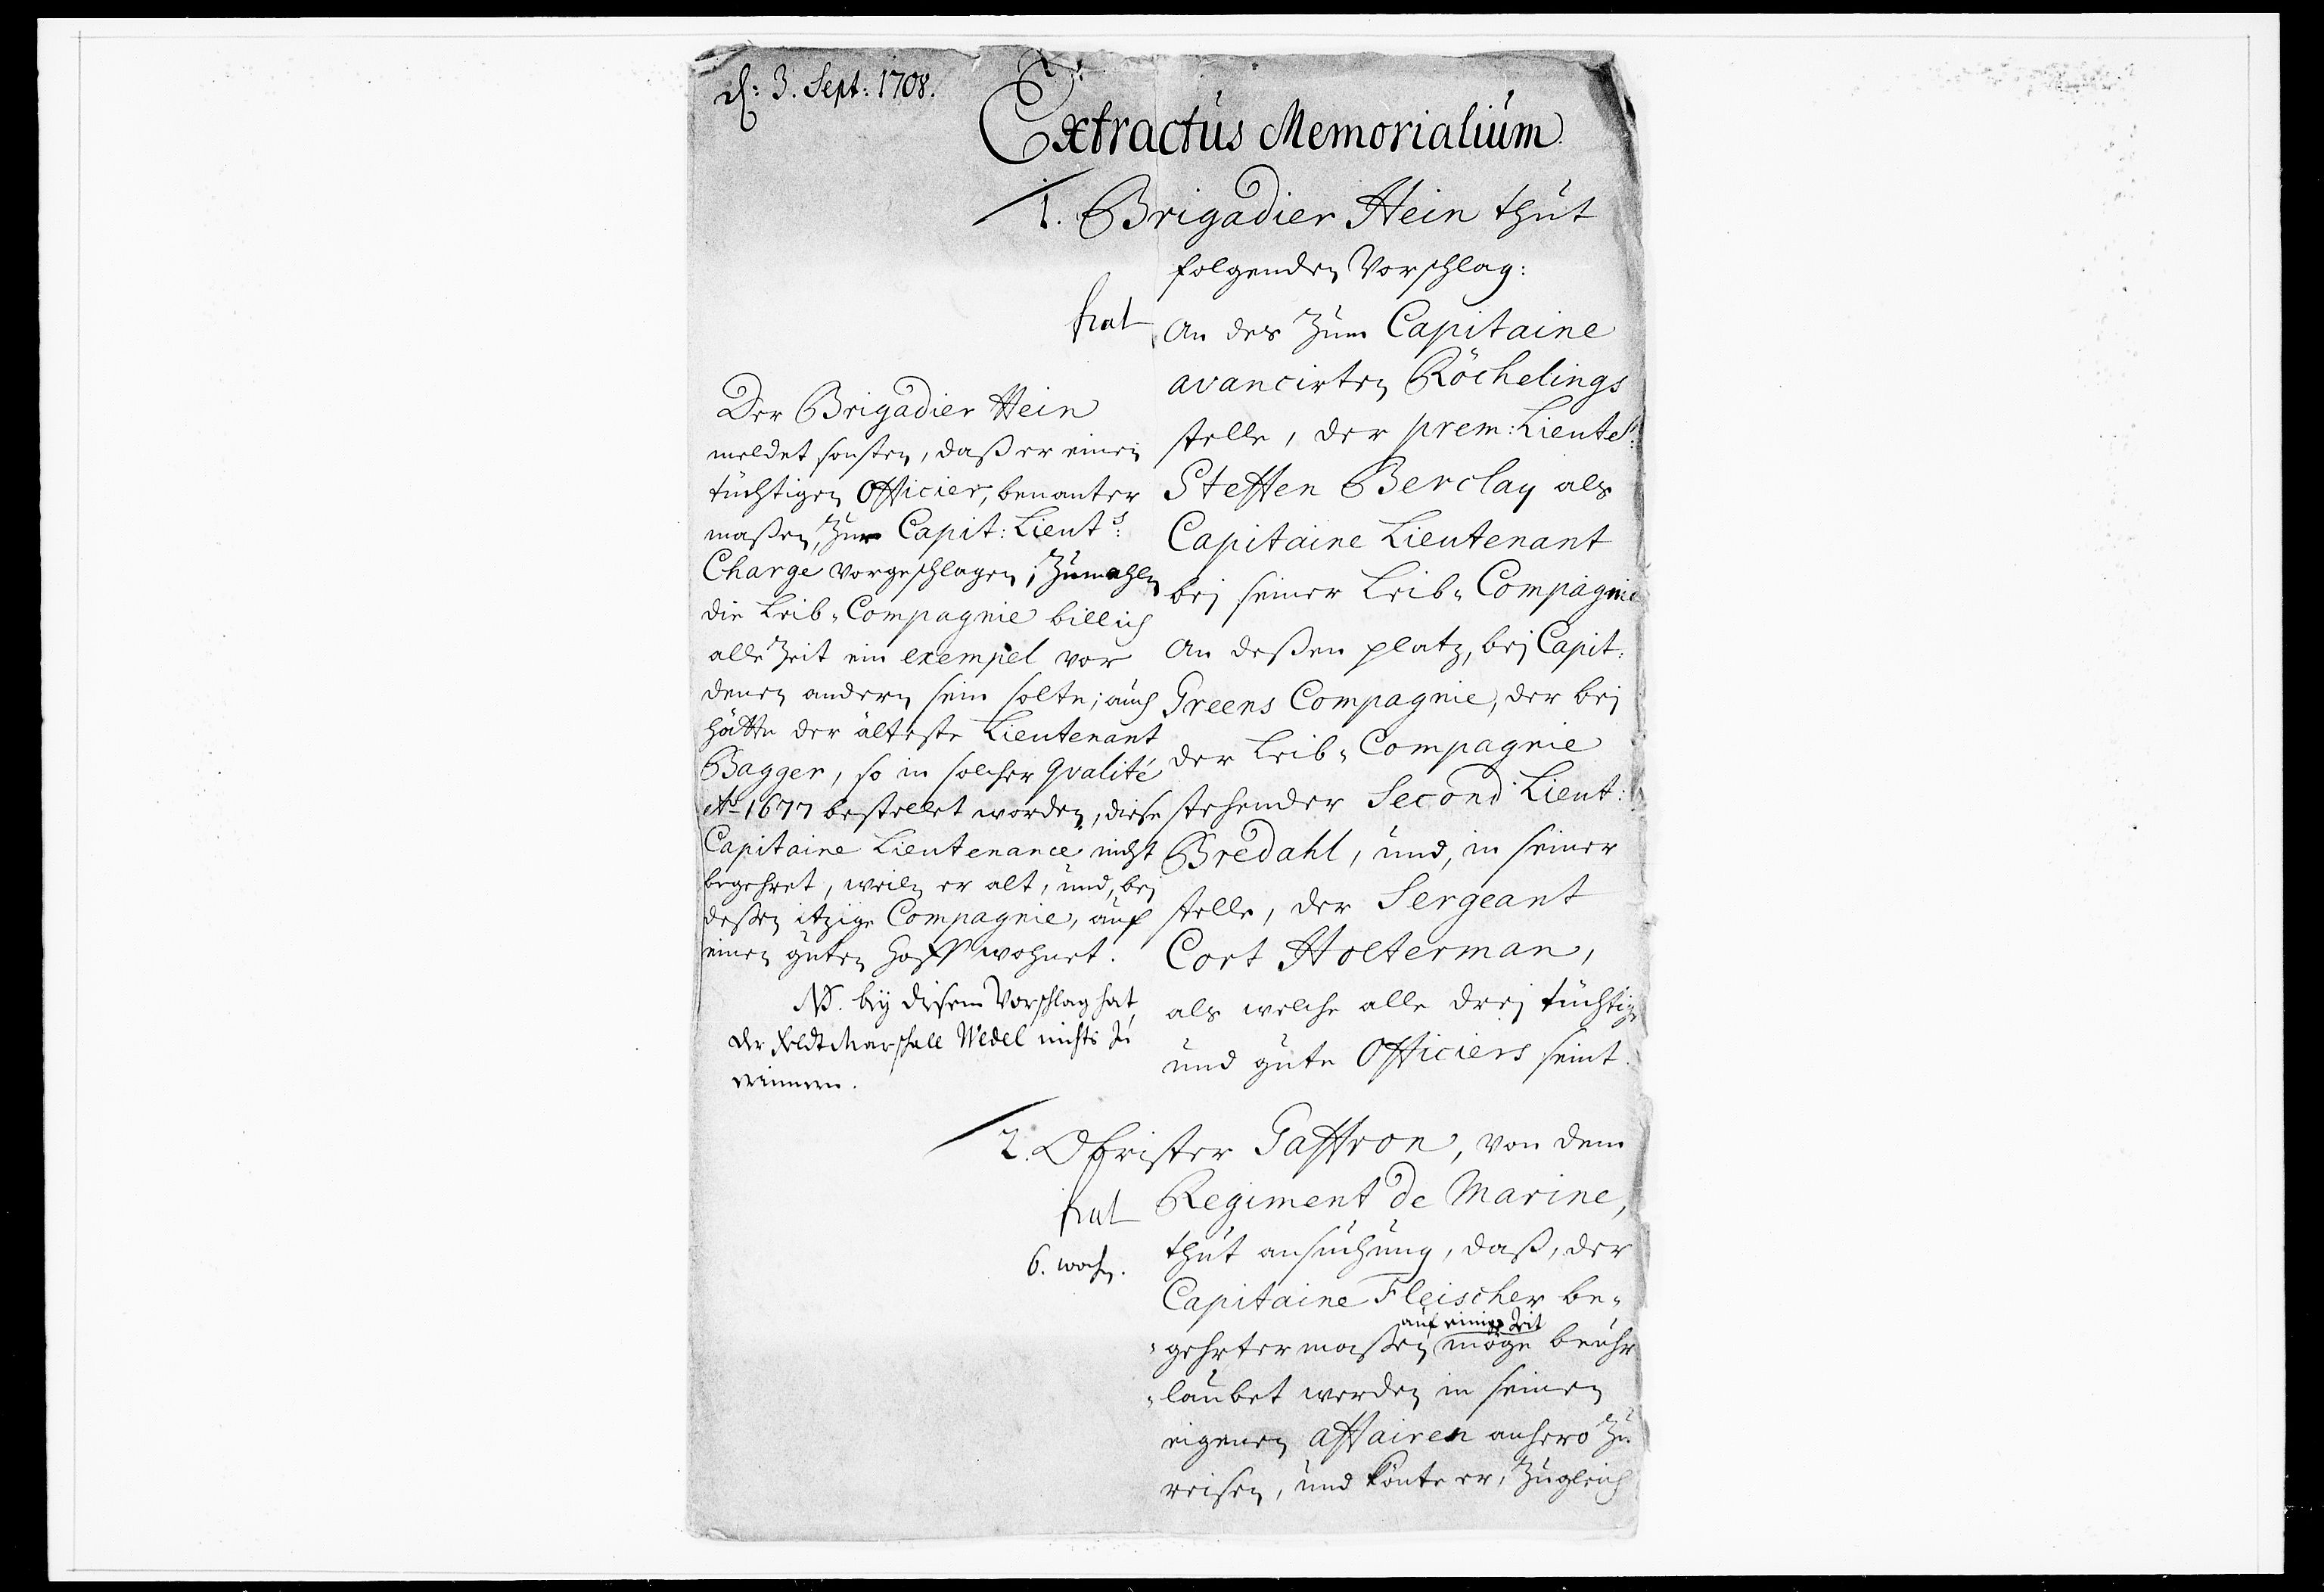 d: 3. Sept: 1708.
Extractus Memorialium
1. Brigadier Hein thut
folgenden Vorschlag:
fiat
An des zum Capitaine
avancirten Röchelings
stelle, der prem: Lieute:
Steffen Berclay als
Capitaine Lieutenant
bej seiner Leib-Compagnie
An deßen platz, bej Capit:
Greens Compagnie, der bej
der Leib-Compagnie
stehender Second Lieut:
Bredahl, und, in seiner
stelle, der Sergeant
Cort Holterman,
als welche alle drej tüchtige
und gute Officiers seint.
Der Brigadier Hein
meldet sonsten, daß er einen
tüchtigen Officier, benanter
maßen, zur Capit: Lieuts:
Charge vorgeschlagen; zumahlen
die Leib-Compagnie billich
alle Zeit ein exempel vor
denen andern sein solte; auch
hätte der älteste Lieutenant
Bagger, so in solcher qvalité
Ao 1677 bestellet worden, diese
Capitaine Lieutenance nicht
begehret, weiln er alt, und, bej
deßen itzige Compagnie, auf
einen guten Hoff wohnet.
NB. bey diesem Vorschlag hat
der Feldt Marschall Wedel nichts zu
erinnern.
2. Obrister Gaffron, von dem
Regiment de Marine,
fiat
6. woch.
thut ansuchung, daß, der
Capitaine Fleischer be-
auf einige Zeit
-gehrter maßen möge beuhr
-laubet werden in seinen
eigenen affairen anhero zu
reisen, und könte er, zugleich